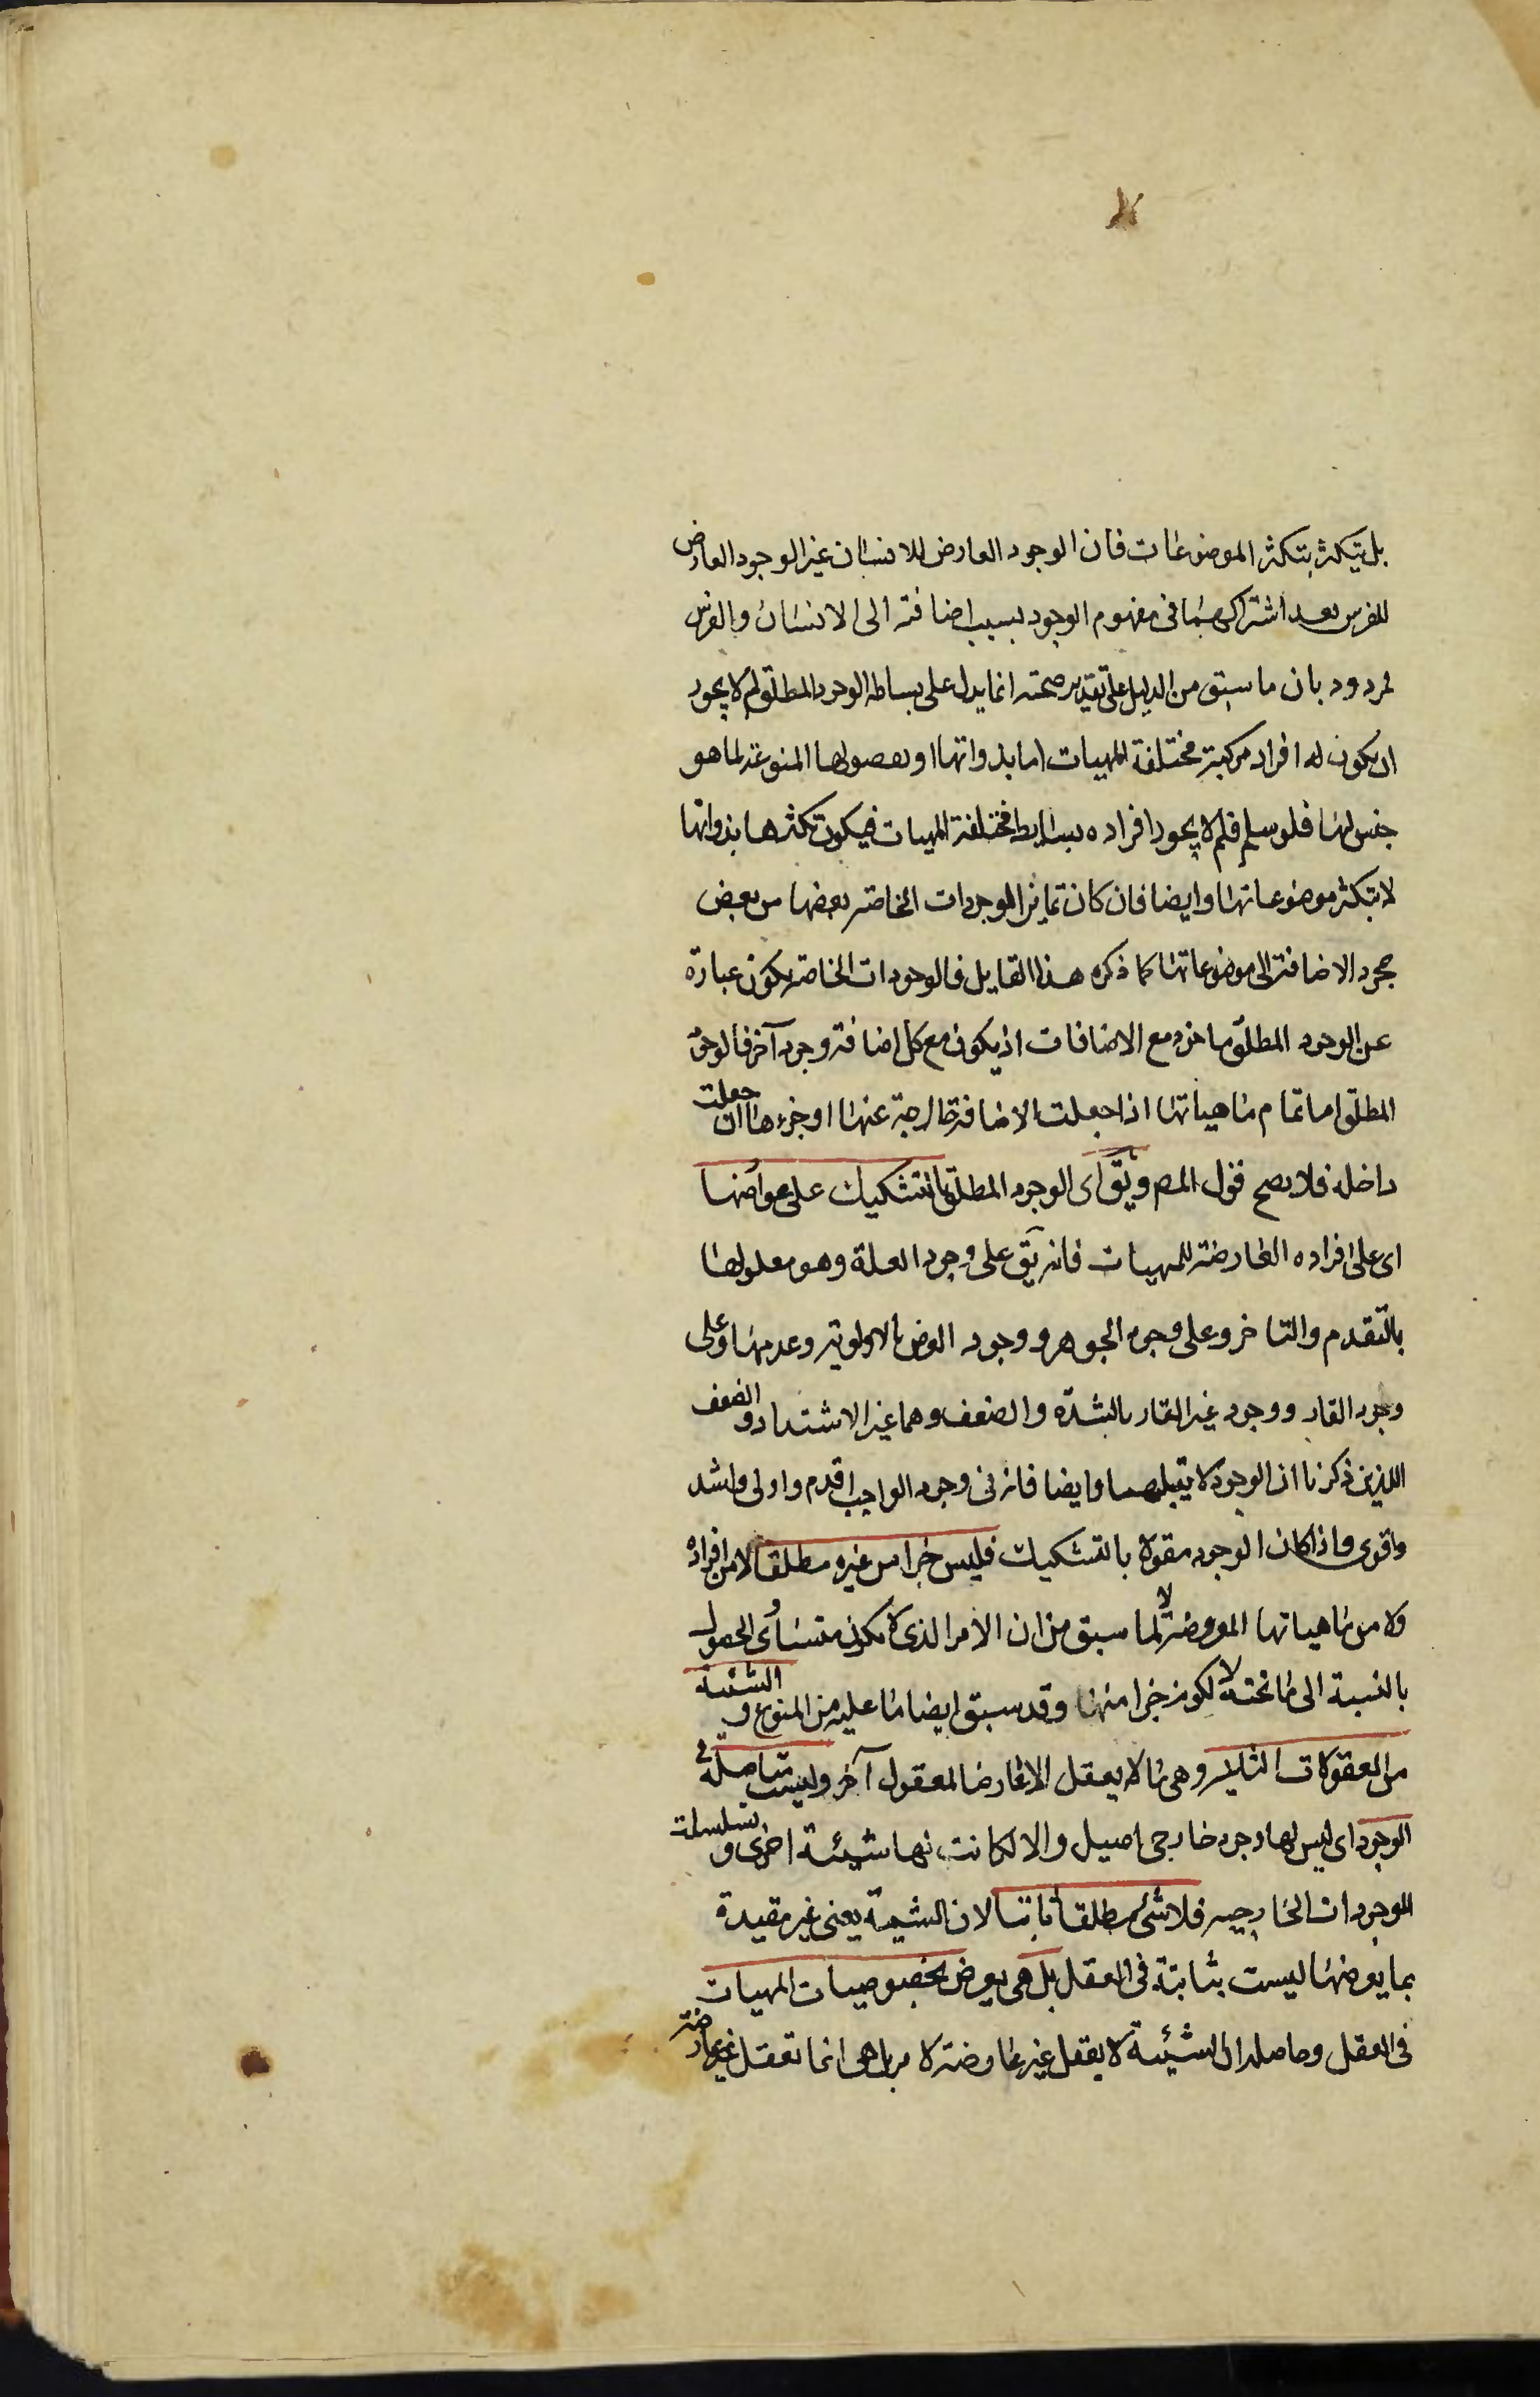 بل يتكثر بتكثر الموضوعات فان الوجود العارض للانسان غير الوجود العارض
للفرس بعد اشتراكهما فى مفهوم الوجود بسبب اضافته الى الانسان والفرس
مردود بان ما سبق من الدليل على تقدير صحته انما يدل على بساطة الوجود المطلق فلم لا يجوز
ان يكون له افراد مركبة مختلفة المهيات اما بذواتها او بفصولها المنوعة لما هو
جنس لها فلو سلم فلم لا يجوز افراده بسايط مختلفة المهيات فيكون تكثرها بذواتها
لا بتكثر موضوعاتها وايضا فان كان تمايز الموجودات الخاصة بعضها من بعض
بمجرد الاضافة الى موضوعاتها كما ذكره هذا القايل فالوجودات الخاصة يكون عبارة
عن الوجود المطلق ماخوذ مع الاضافات اذ يكون مع كل اضافة وجود آخر فالوجود
المطلق اما تمام ماهياتها اذا جعلت الاضافة خارجة عنها او جزءها ان جعلت
داخلة فلا يصح قول المصـ ويق اى الوجود المطلق بالتشكيك على عوارضها
اى على افراده العارضة للمهيات فانه يق على وجود العلة وهو معلولها
بالتقدم والتاخر وعلى وجود الجوهر ووجود العرض بالاولوية وعدمها وعلى
وجود القار ووجود غير القار بالشدة والضعف وهما غير الاشتداد والضعف
اللذين ذكرنا ان الوجود لا يقبلهما وايضا فانه فى وجود الواجب اقدم واولى واشد
واقوى واذا كان الوجود مقولا بالتشكيك فليس جزا من غيره مطلقا لا من افراده
ولا من ماهياتها المعروضة لما سبق من ان الامر الذى لا يكون متساوى الحصول
بالنسبة الى ما تحته لا يكون جزا منها وقد سبق ايضا ما عليه من المنوع و الشيئية
من المعقولات الثانية وهى ما لا يعقل الا عارضا لمعقول آخر وليست متاصلة فى
الوجود اى ليس لها وجود خارجى اصيل والا لكانت لها شيئة اخرى و تسلسلت
الموجودات الخارجيه فلا شئ مطلقا ثابتا لان الشيئية يعنى غير مقيدة
بما يعرضها ليست بثابتة فى العقل بل هى يعرض لخصوصيات المهيات
فى العقل وحاصله ان الشيئية لا يعقل غير عارضة لامر بل هى انما تعقل عارضة